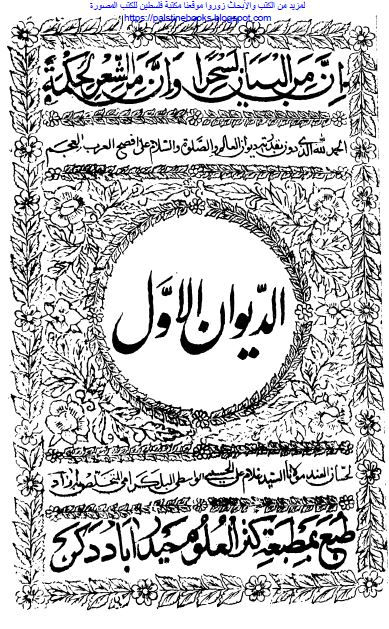 لمزيد من الكتب والأبحاث زوروا موقعنا مكتبة فلسطين للكتب المصورة
https://palstinebooks.blogspot.com
ان من البيان لسحرا وان من الشعر لحكمة
الحمد لله الذي دون بقدرته ديوان العالم والصلوة والسلام على افصح العرب والعجم
الديوان الاول
لحسان الهند مولانا السيد غلام علي الحسيني الواسطي البلكرامي المتخلص بآزاد
طبع بمطبعة كنز العلوم حيدراباد دكن